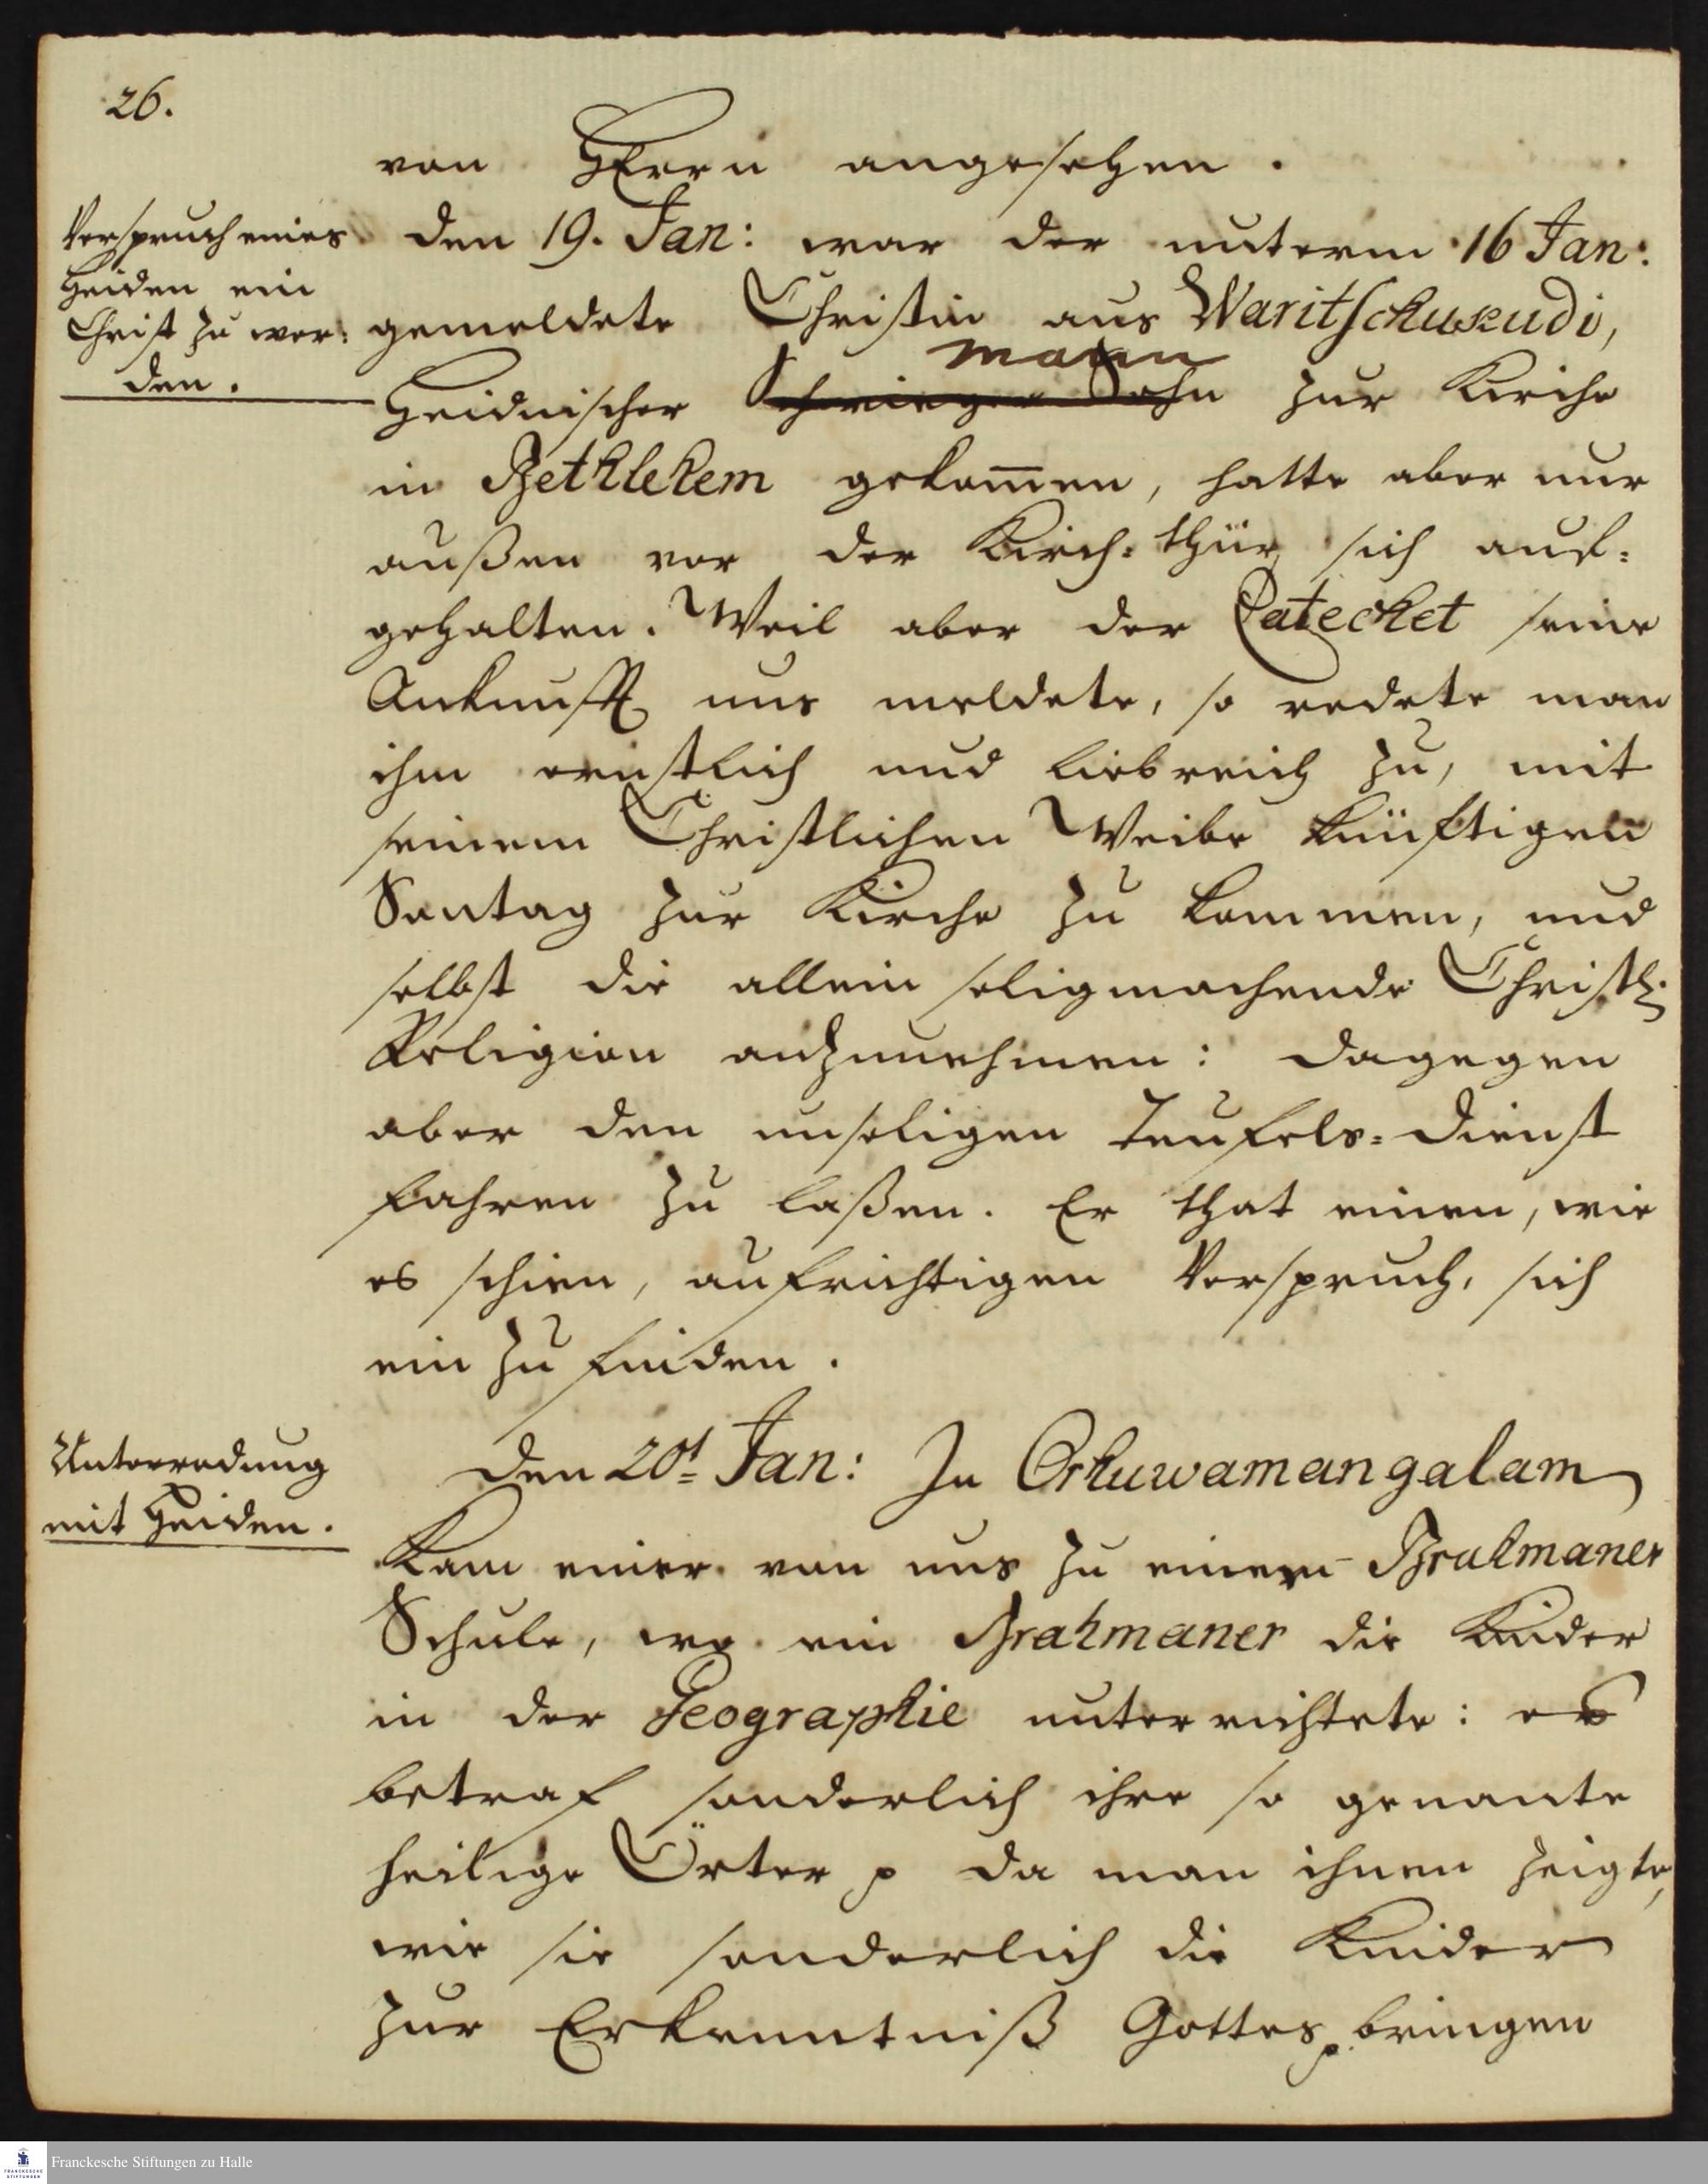 26.
von HErrn angesehen.
Verspruch eines
Heiden ein
Christ zu wer:
den.
den 19. Jan: war der unterm 16 Jan:
gemeldete Christin aus Waritschukudi,
mann
Heidnischer Schwieger Sohn zur Kirche
in Bethlehem gekom̄en, hatte aber nur
außen vor der Kirch: thür sich auf:
gehalten. Weil aber der Catechet seine
Ankunfft uns meldete, so redete man
ihm ernstlich und liebreich zu, mit
seinem Christlichen Weibe künftigen
Sontag zur Kirche zu kommen, und
selbst die allein seligmachende Christl.
Religion anzunehmen: dagegen
aber den unseligen Teufels-dienst
fahren zu laßen. Er that einen, wie
es schien, aufrichtigen Verspruch, sich
ein zu finden.
Unterredung
mit Heiden.
den 20t Jan: In Orhuwamangalam
kam einer von uns zu einem Brahmaner
Schule, wo ein Brahmaner die Kinder
in der Geographie unterrichtete: es
betraf sonderlich ihre so genante
heilige Örter p da man ihnen zeigte,
wie sie sonderlich die Kinder
zur Erkenntniß Gottes p. bringen
Franckesche Stiftungen zu Halle